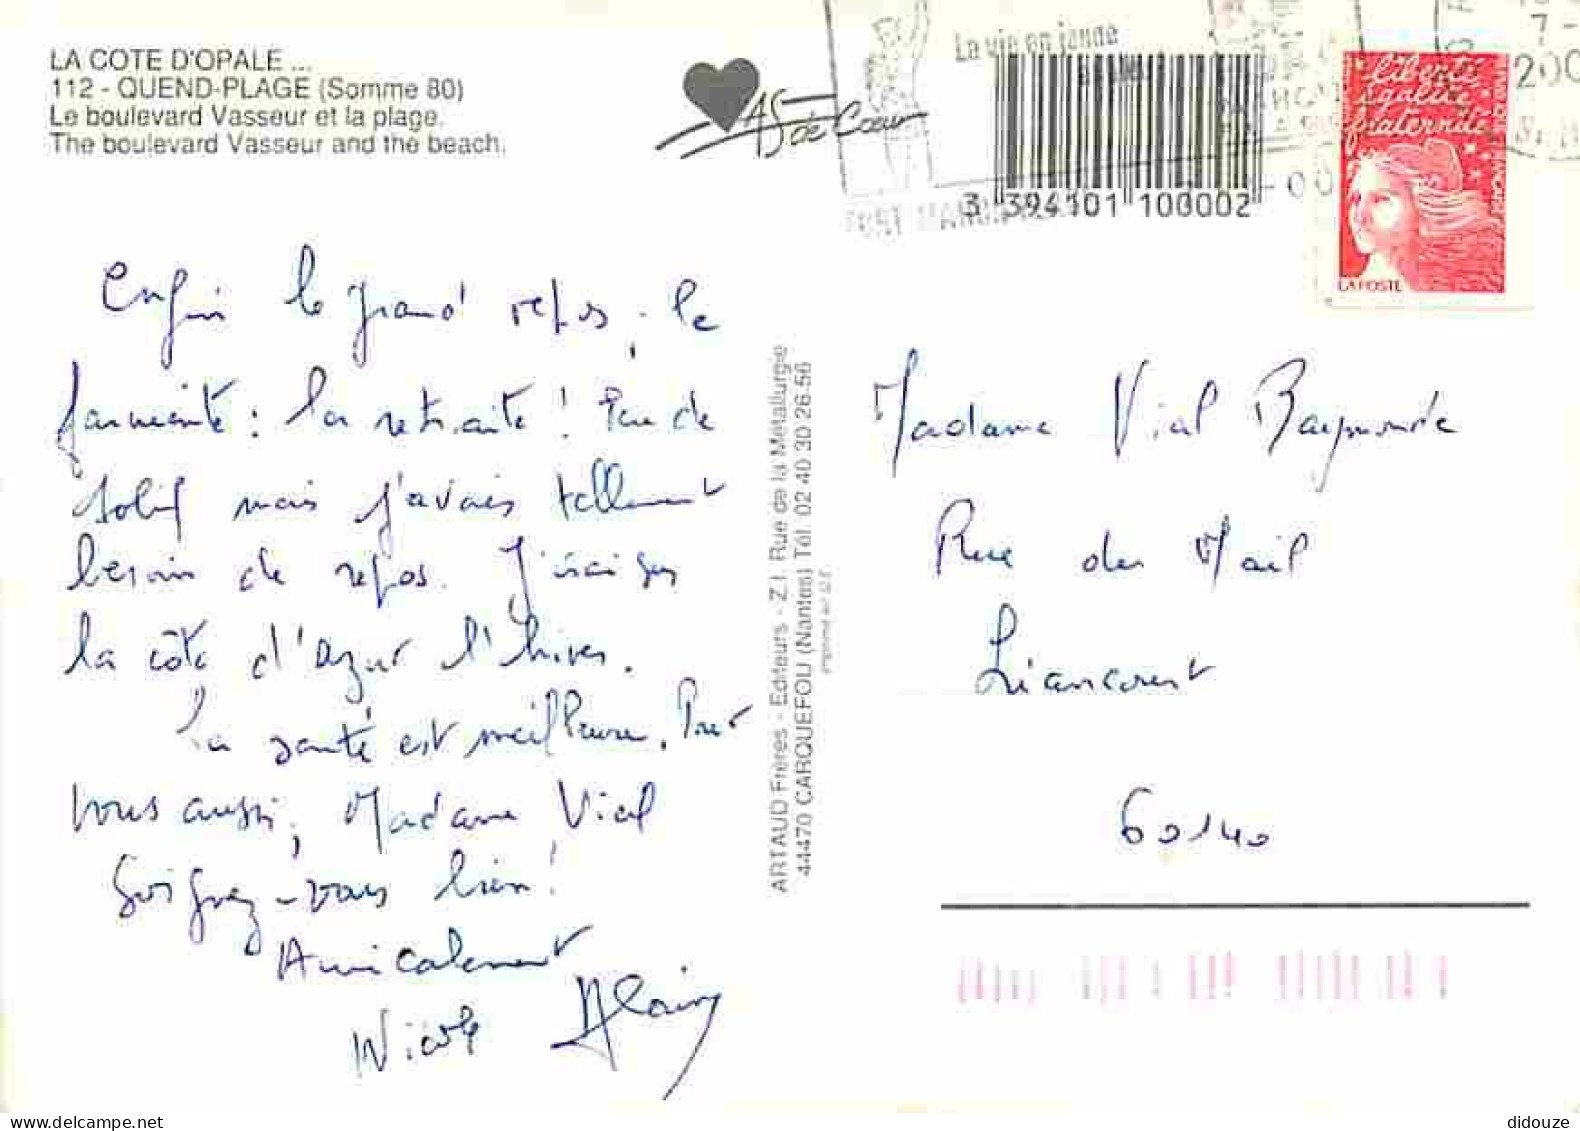 LA COTE D'OPALE ...
112 - QUEND-PLAGE (Somme 80)
Le boulevard Vasseur et la plage.
The boulevard Vasseur and the beach.
AS de Coeur
La vie en jaune
3 394101 100002
7-
200
liberté
égalité
fraternité
LA POSTE
Enfin le grand repos, le
farniente : la retraite ! Peu de
soleil mais j'avais tellement
besoin de repos. J'irai sur
la côte d'azur l'hiver.
La santé est meilleure. Pour
vous aussi, Madame Vial
Soignez-vous bien !
Amicalement
Nicole Alain
ARTAUD Frères - Editeurs - Z.I. Rue de la Métallurgie
44470 CARQUEFOU (Nantes) Tél. 02 40 30 26 56
Imprimé en U.E.
Madame Vial Raymonde
Rue du Mail
Liancourt
60140
didouze